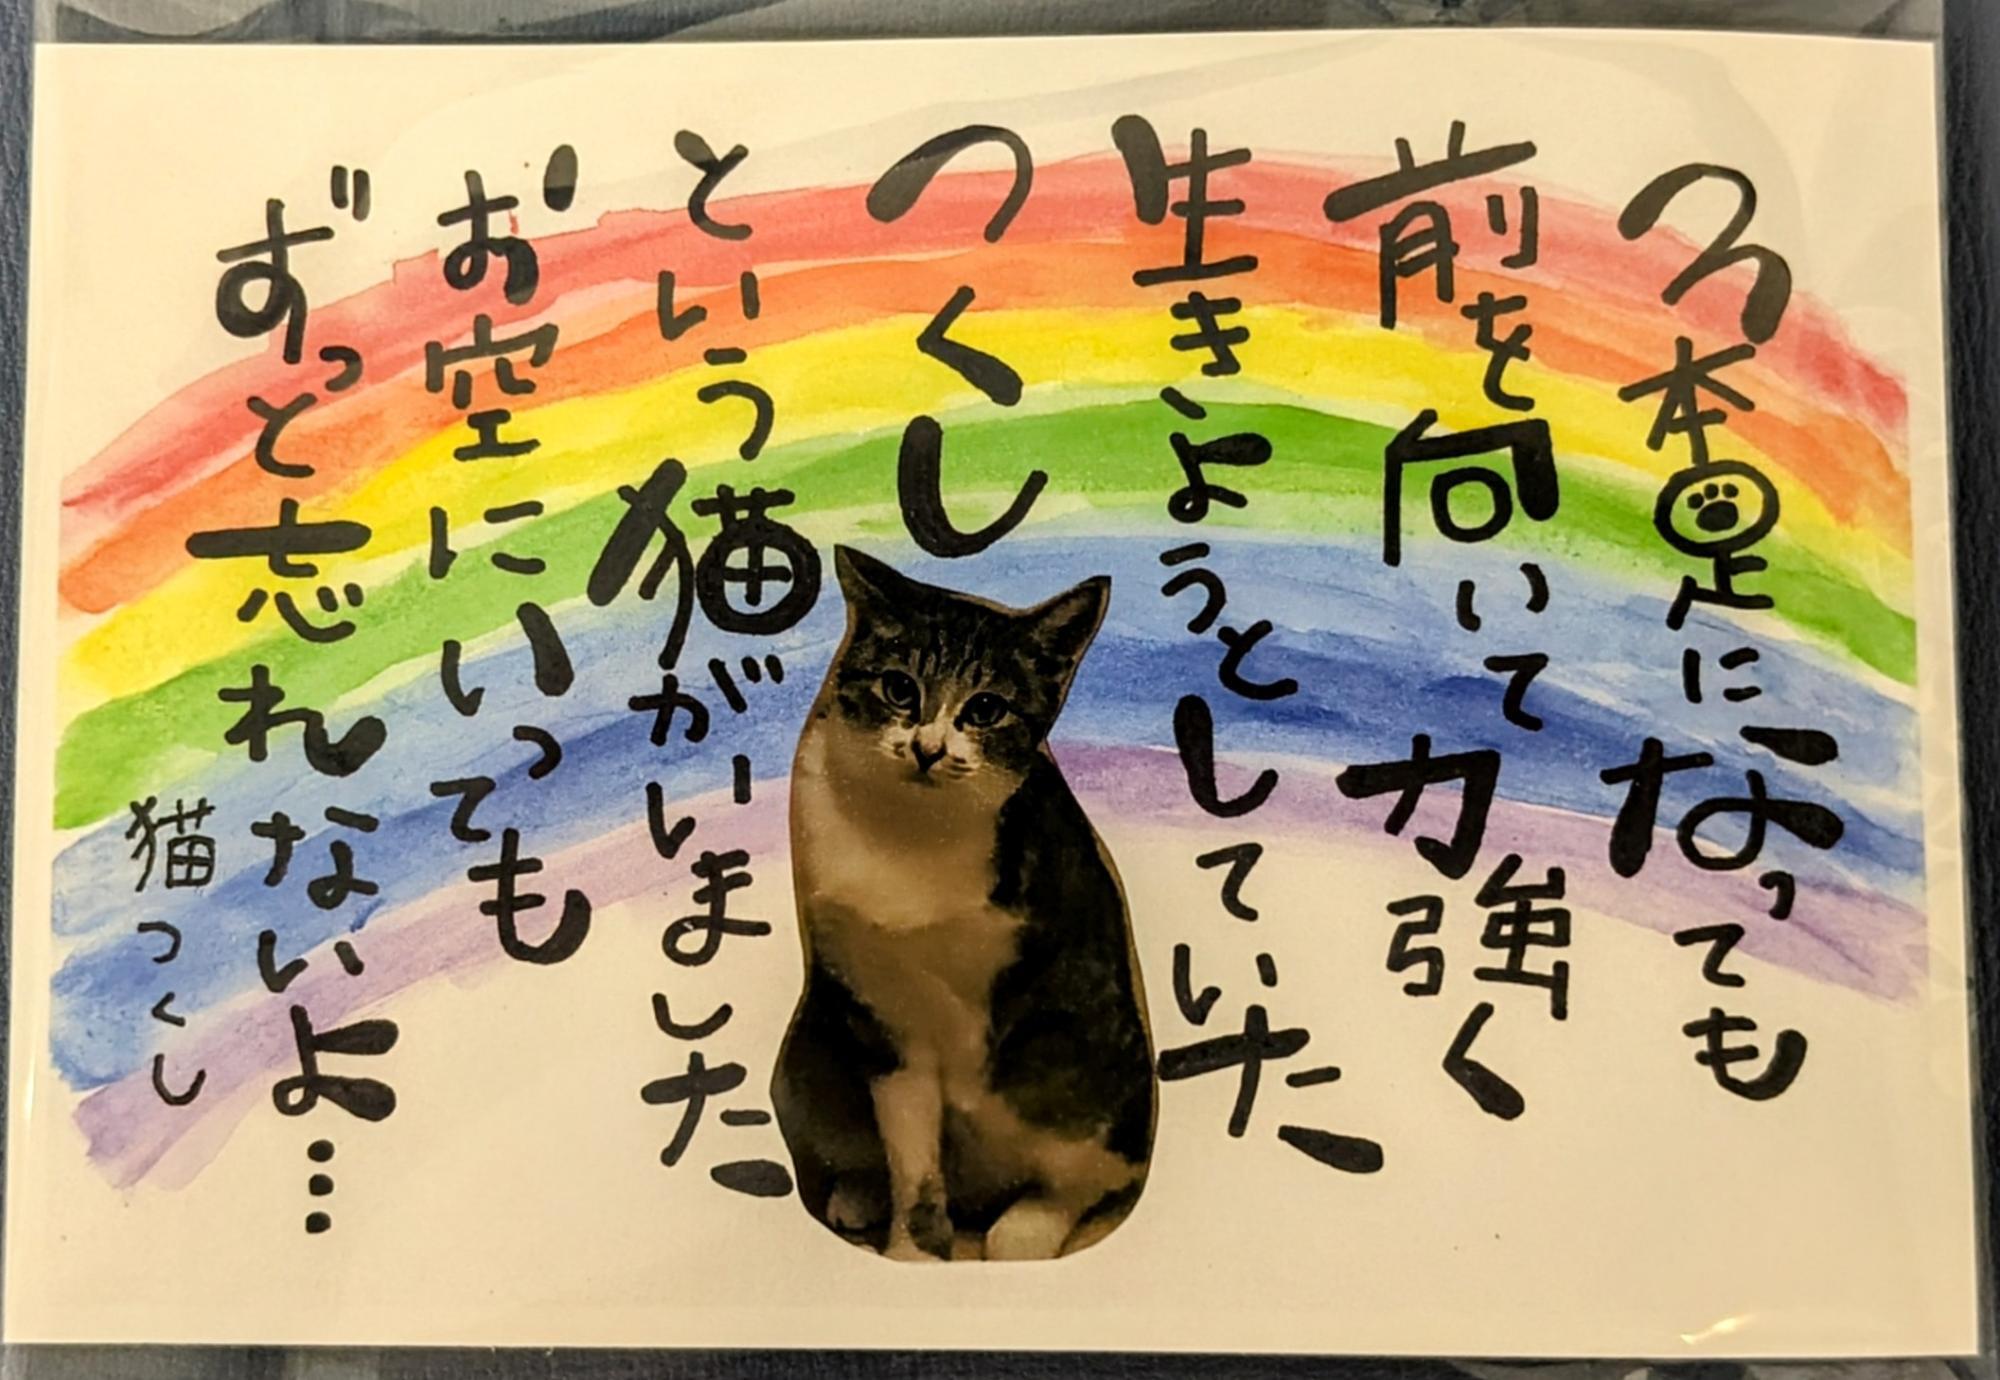 3本足になっても
前を向いて力強く
生きようとしていた
つくし
という猫がいました
お空にいっても
ずっと忘れないよ…
猫つくし